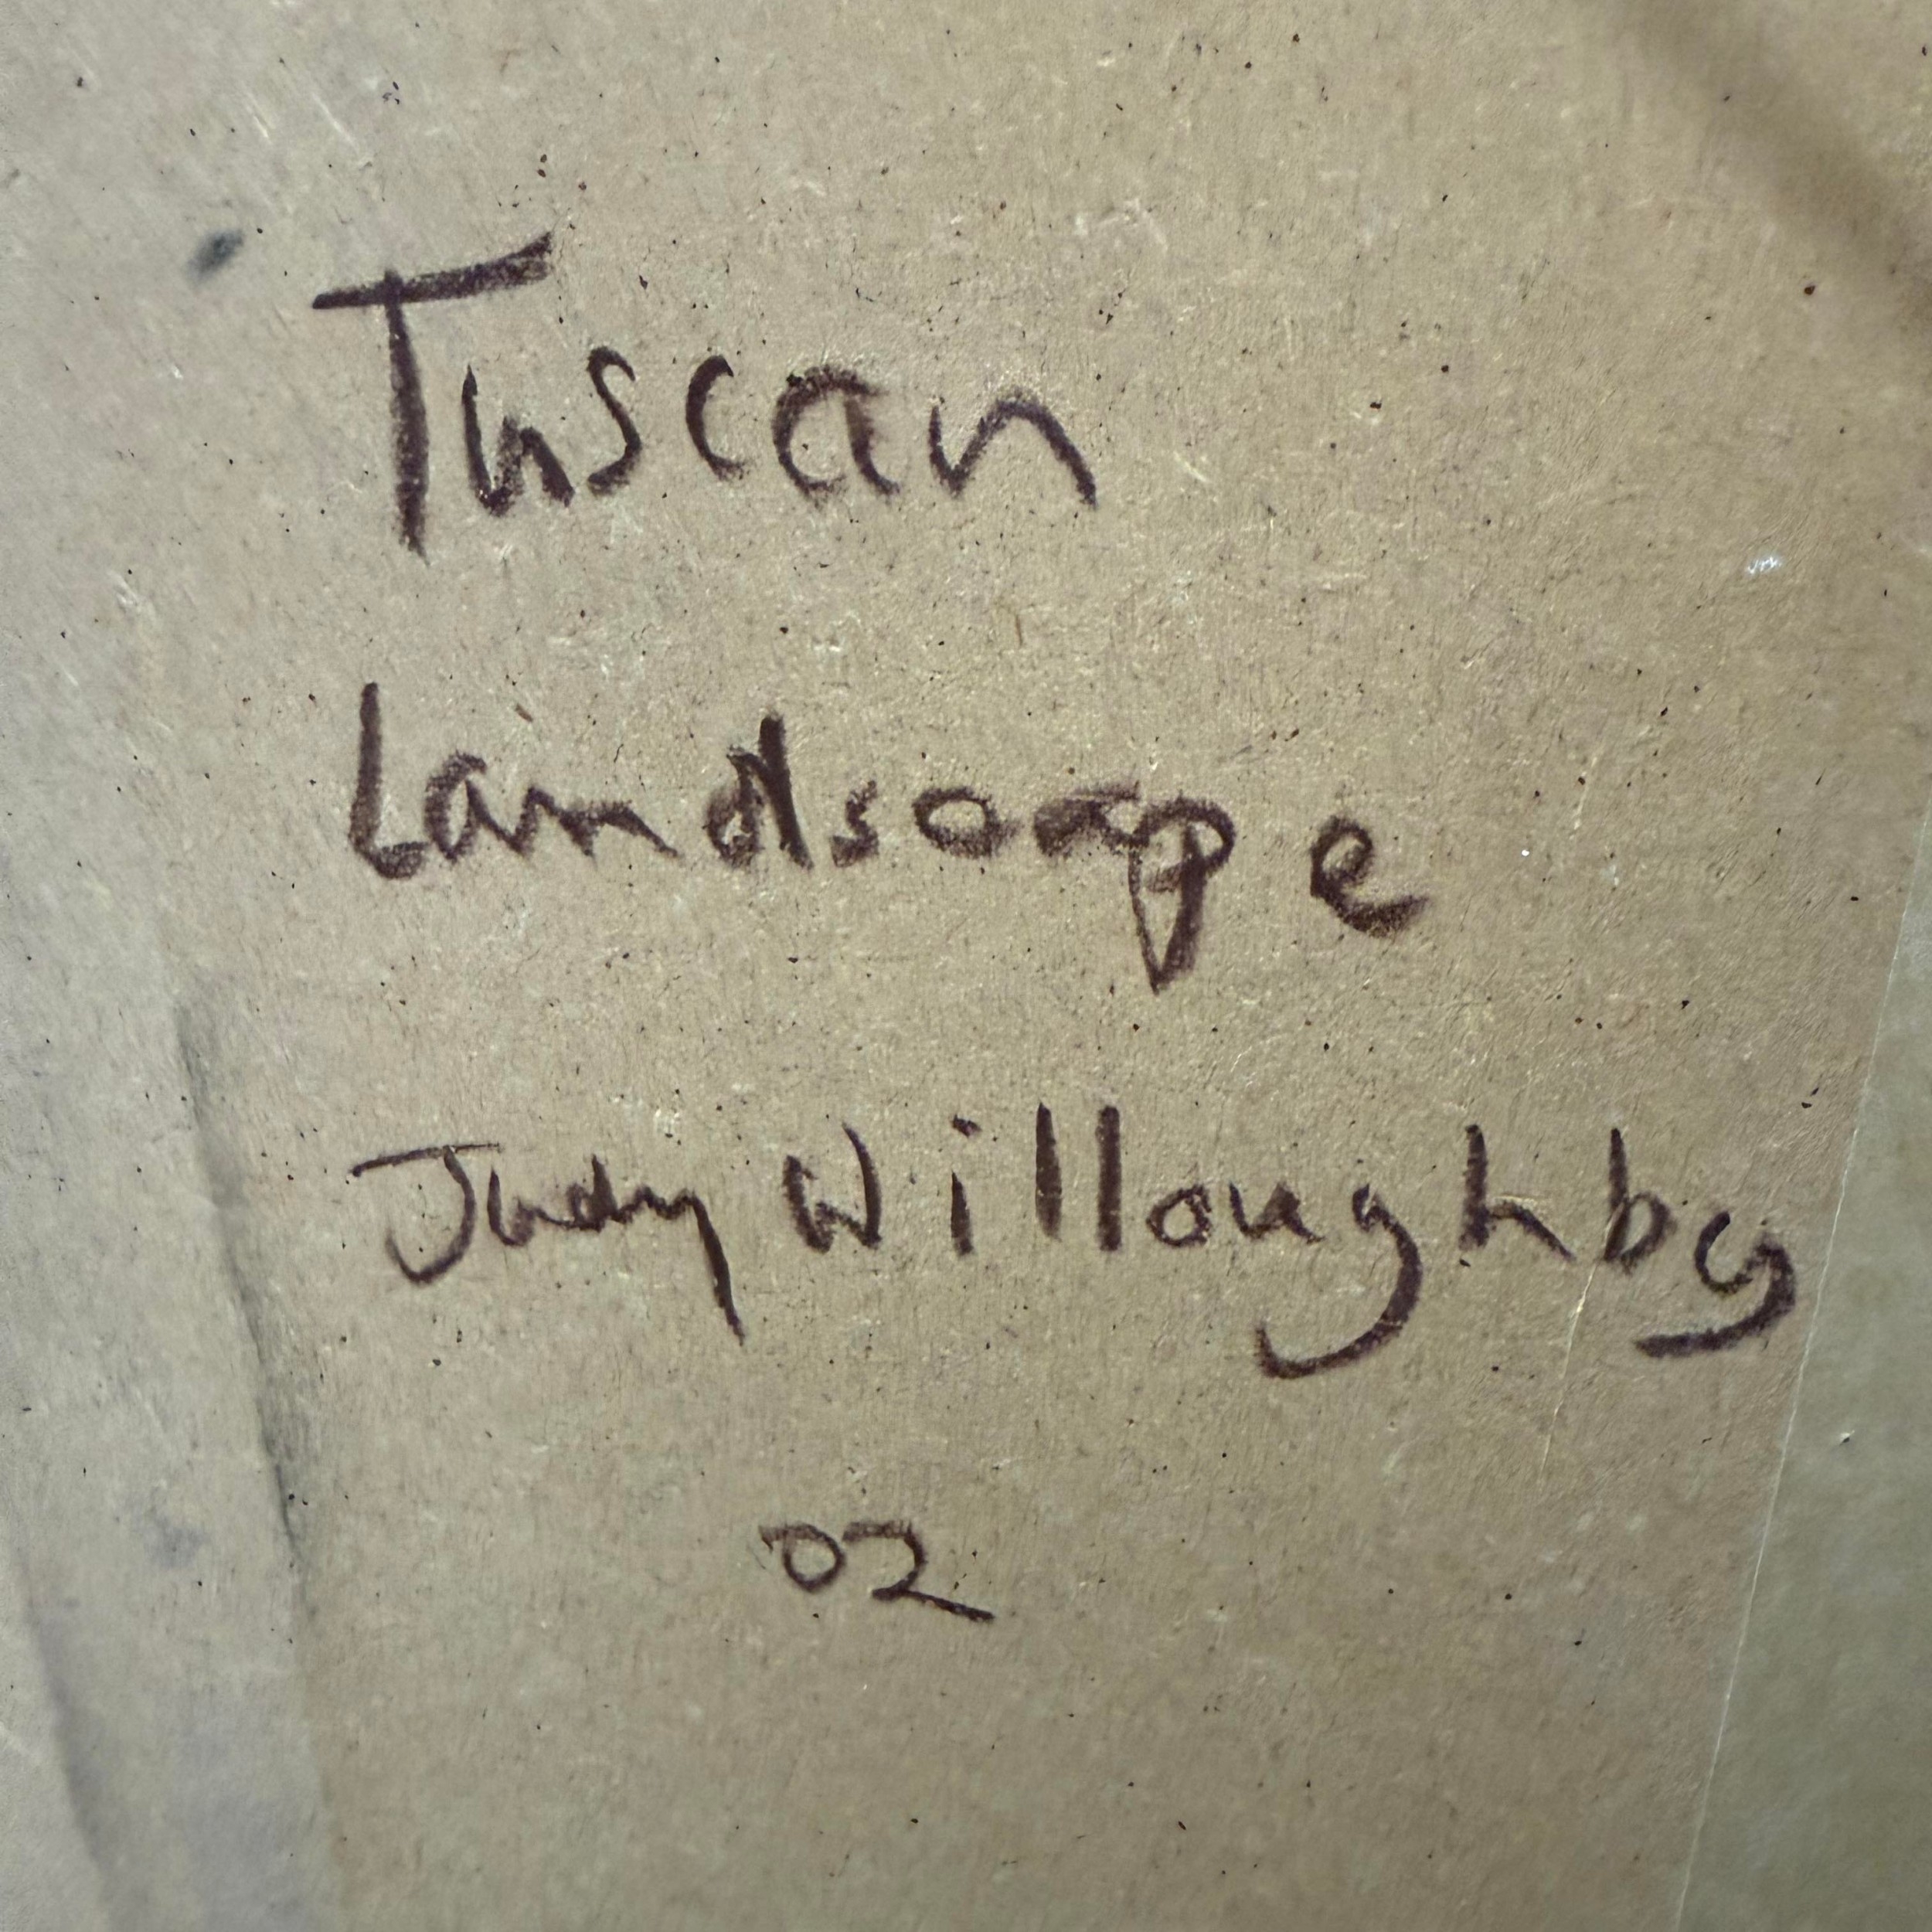 Tuscan
Landscape
Judy Willoughby
02